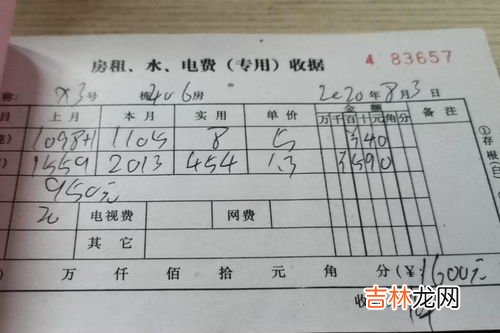 房租、水、电费（专用）收据 4 83657
称: 83号 栋406房 2020年8月3日
目 上月 本月 实用 单价 金额 备注
万 千 百 十 元 角 分
吨) 1098+1 1105 8 5 ¥40
) 1559 2013 454 1.3 ¥590
950元
20 电视费 网费
其它
) 万 仟 佰 拾 元 角 分（¥: 1600元
收
①存根(白
吉林龙网